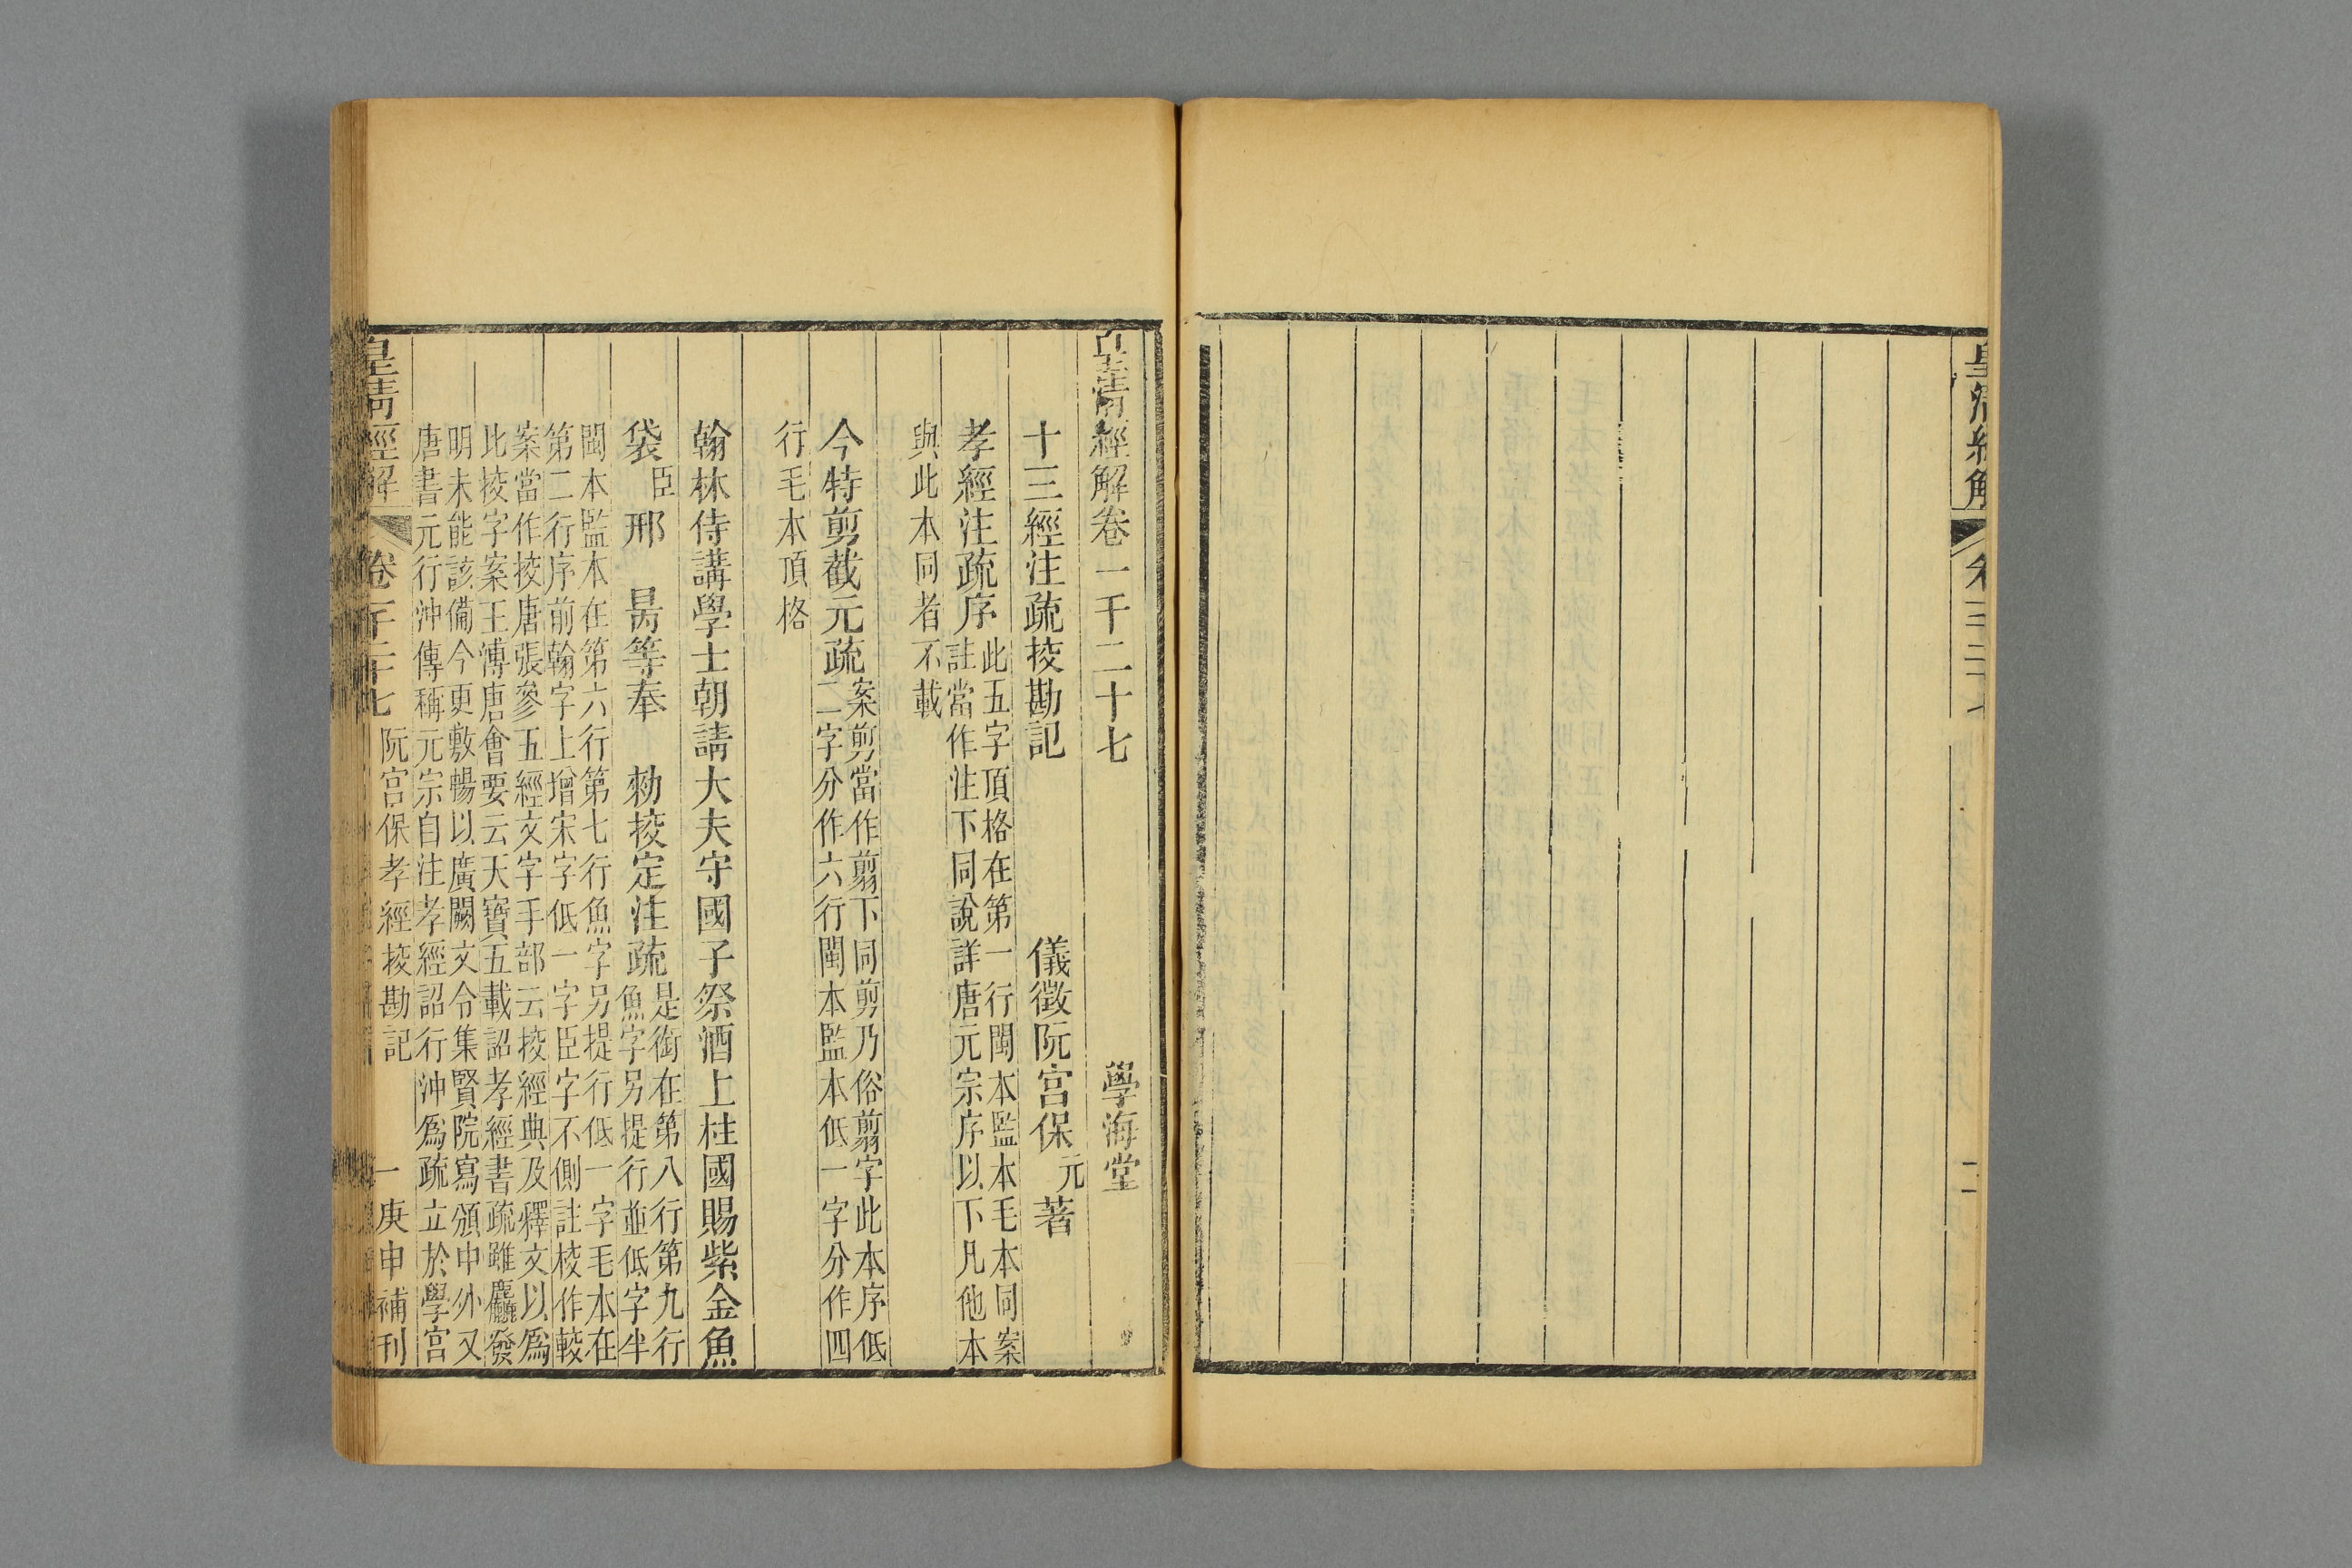 皇清經解
二
皇清經解卷一千二十七
學海堂
十三經注疏挍勘記
儀徵阮宮保元著
孝經注疏序
此五字頂格在第一行閩本監本毛本同案
註當作注下同說詳唐元宗序以下凡他本
與此本同者不載
今特剪截元疏
案剪當作翦下同剪乃俗翦字此本序低
二字分作六行閩本監本低一字分作四
行毛本頂格
翰林侍講學士朝請大夫守國子祭酒上柱國賜紫金魚
袋臣邢 昺等奉 勑挍定注疏
是銜在第八行第九行
魚字另提行並低字半
閩本監本在第六行第七行魚字另提行低一字毛本在
第二行序前翰字上增宋字低一字臣字不側註校作較
案當作挍唐張參五經文字手部云挍經典及釋文以爲
此挍字案王溥唐會要云天寶五載詔孝經書疏雖麤發
明未能該備今更敷暢以廣闕文令集賢院寫頒中外又
唐書元行沖傳稱元宗自注孝經詔行沖爲疏立於學宮
皇清經解 卷一千二十七 阮宮保孝經挍勘記 一 庚申補刊